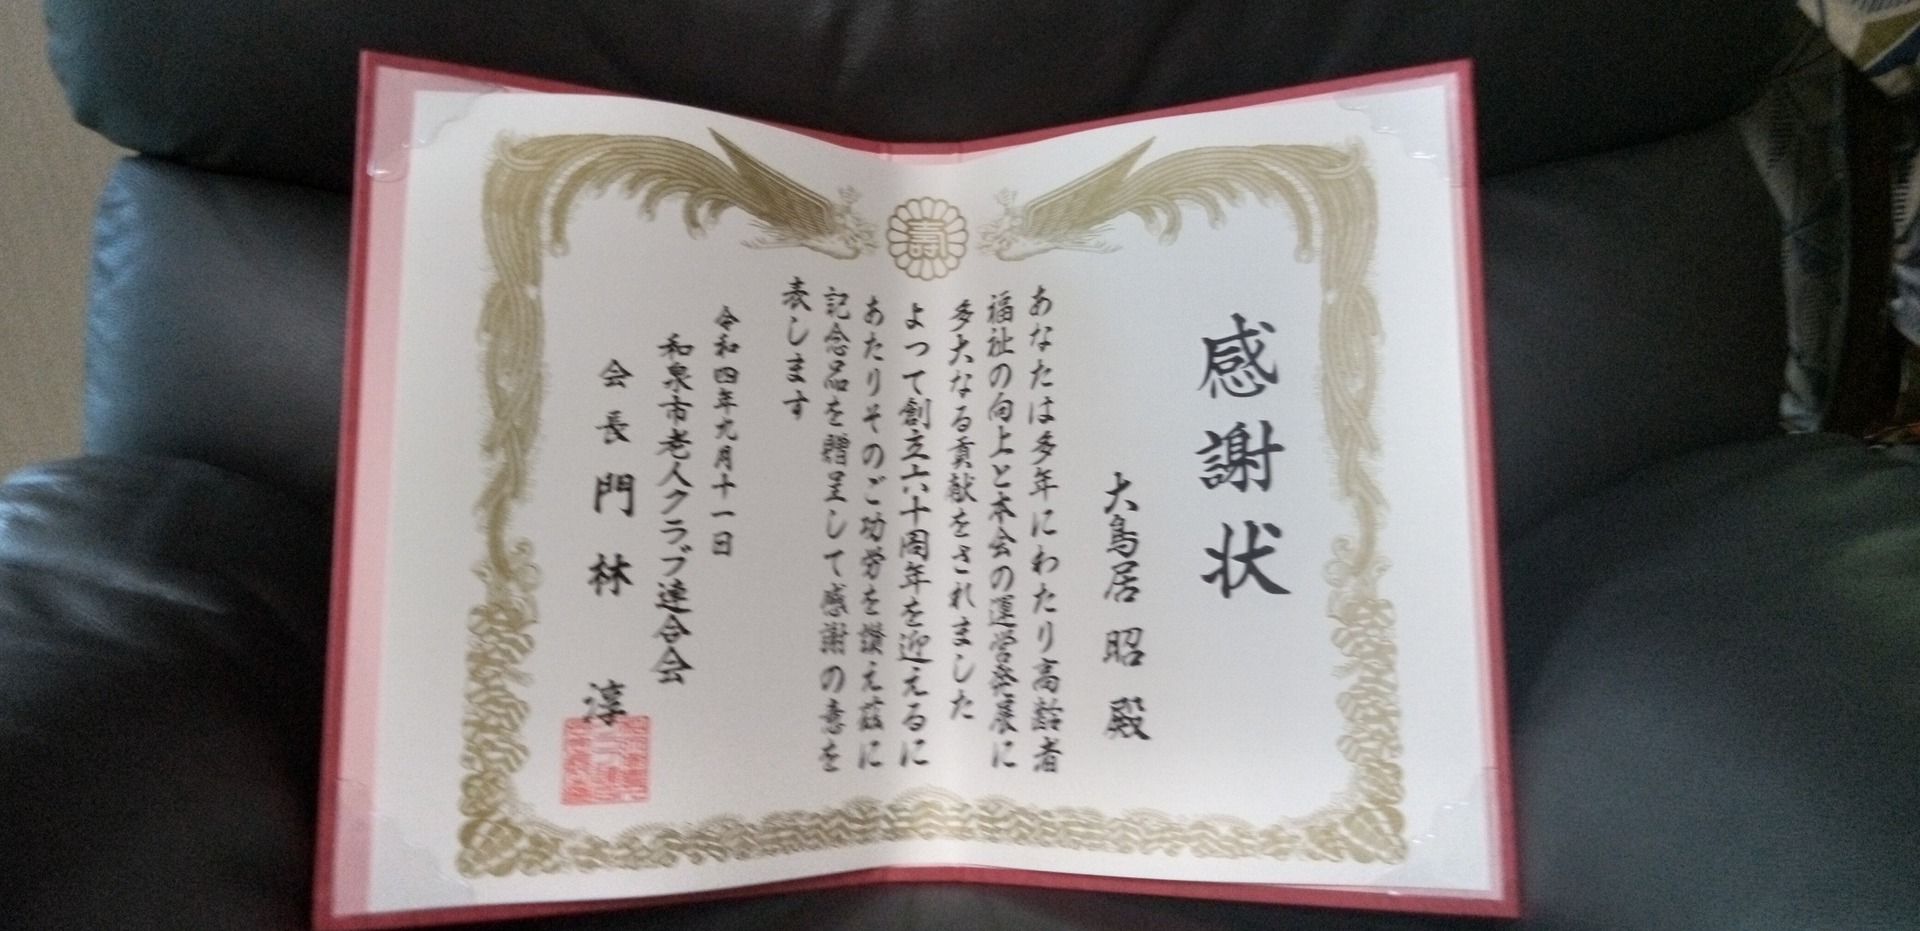 壽
感謝状
大鳥居 昭 殿
あなたは多年にわたり高齢者
福祉の向上と本会の運営発展に
多大なる貢献をされました
よって創立六十周年を迎えるに
あたりそのご功労を讃え茲に
記念品を贈呈して感謝の意を
表します
令和四年九月十一日
和泉市老人クラブ連合会
会長 門林 淳